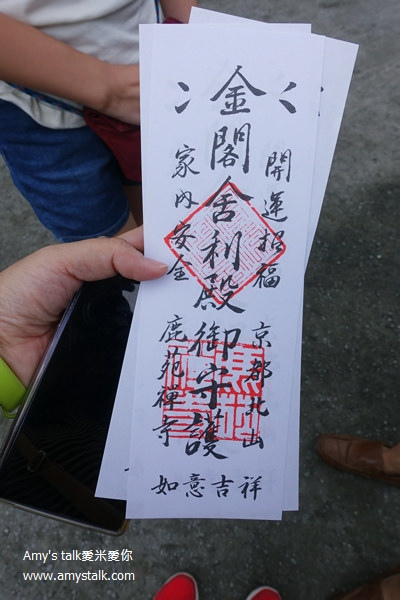 開運招福
京都北山
金閣舍利殿御守護
家内安全
鹿苑禅寺
如意吉祥
Amy's talk愛米愛你
www.amystalk.com